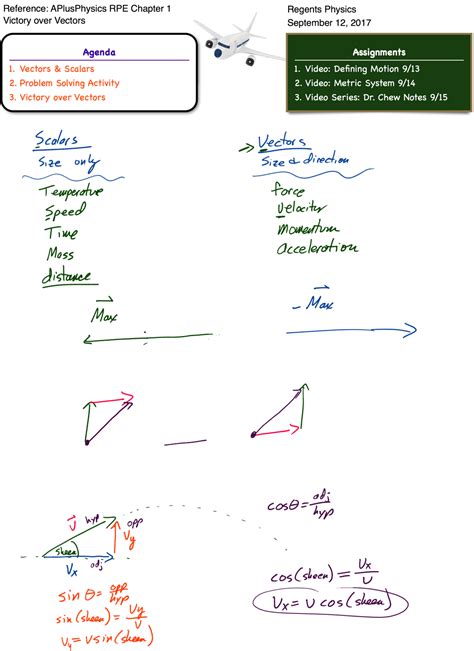 Reference: APlusPhysics RPE Chapter 1
Victory over Vectors
Regents Physics
September 12, 2017
Agenda
1. Vectors & Scalars
2. Problem Solving Activity
3. Victory over Vectors
Assignments
1. Video: Defining Motion 9/13
2. Video: Metric System 9/14
3. Video Series: Dr. Chew Notes 9/15
Scalars
Size only
Temperature
Speed
Time
Mass
distance
→ Vectors
Size & direction
force
Velocity
Momentum
Acceleration
Max
- Max
v hyp opp
Vy
sheen
Vx adj
sin θ = opp/hyp
sin(sheen) = Vy/v
Vy = v sin(sheen)
cos θ = adj/hyp
cos(sheen) = Vx/v
Vx = v cos(sheen)